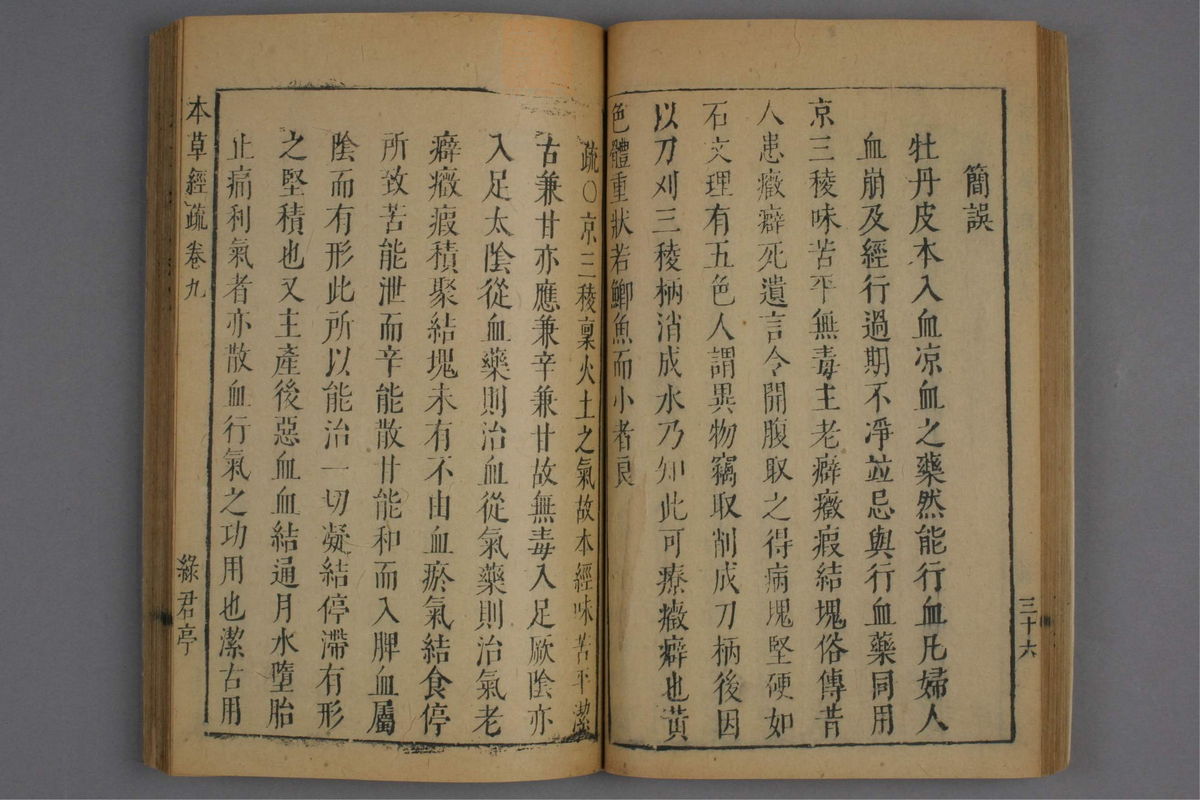 簡誤
牡丹皮本入血凉血之藥然能行血凡婦人
血崩及經行過期不凈並忌與行血藥同用
京三稜味苦平無毒主老癖癥瘕結塊俗傳昔
人患癥癖死遺言令開腹取之得病塊堅硬如
石文理有五色人謂異物竊取削成刀柄後因
以刀刈三稜柄消成水乃知此可療癥癖也黃
色體重狀若鯽魚而小者良
三十六
疏○京三稜稟火土之氣故本經味苦平潔
古兼甘亦應兼辛兼甘故無毒入足厥陰亦
入足太陰從血藥則治血從氣藥則治氣老
癖癥瘕積聚結塊未有不由血瘀氣結食停
所致苦能泄而辛能散甘能和而入脾血屬
陰而有形此所以能治一切凝結停滯有形
之堅積也又主產後惡血血結通月水墮胎
止痛利氣者亦散血行氣之功用也潔古用
本草經疏卷九
綠君亭